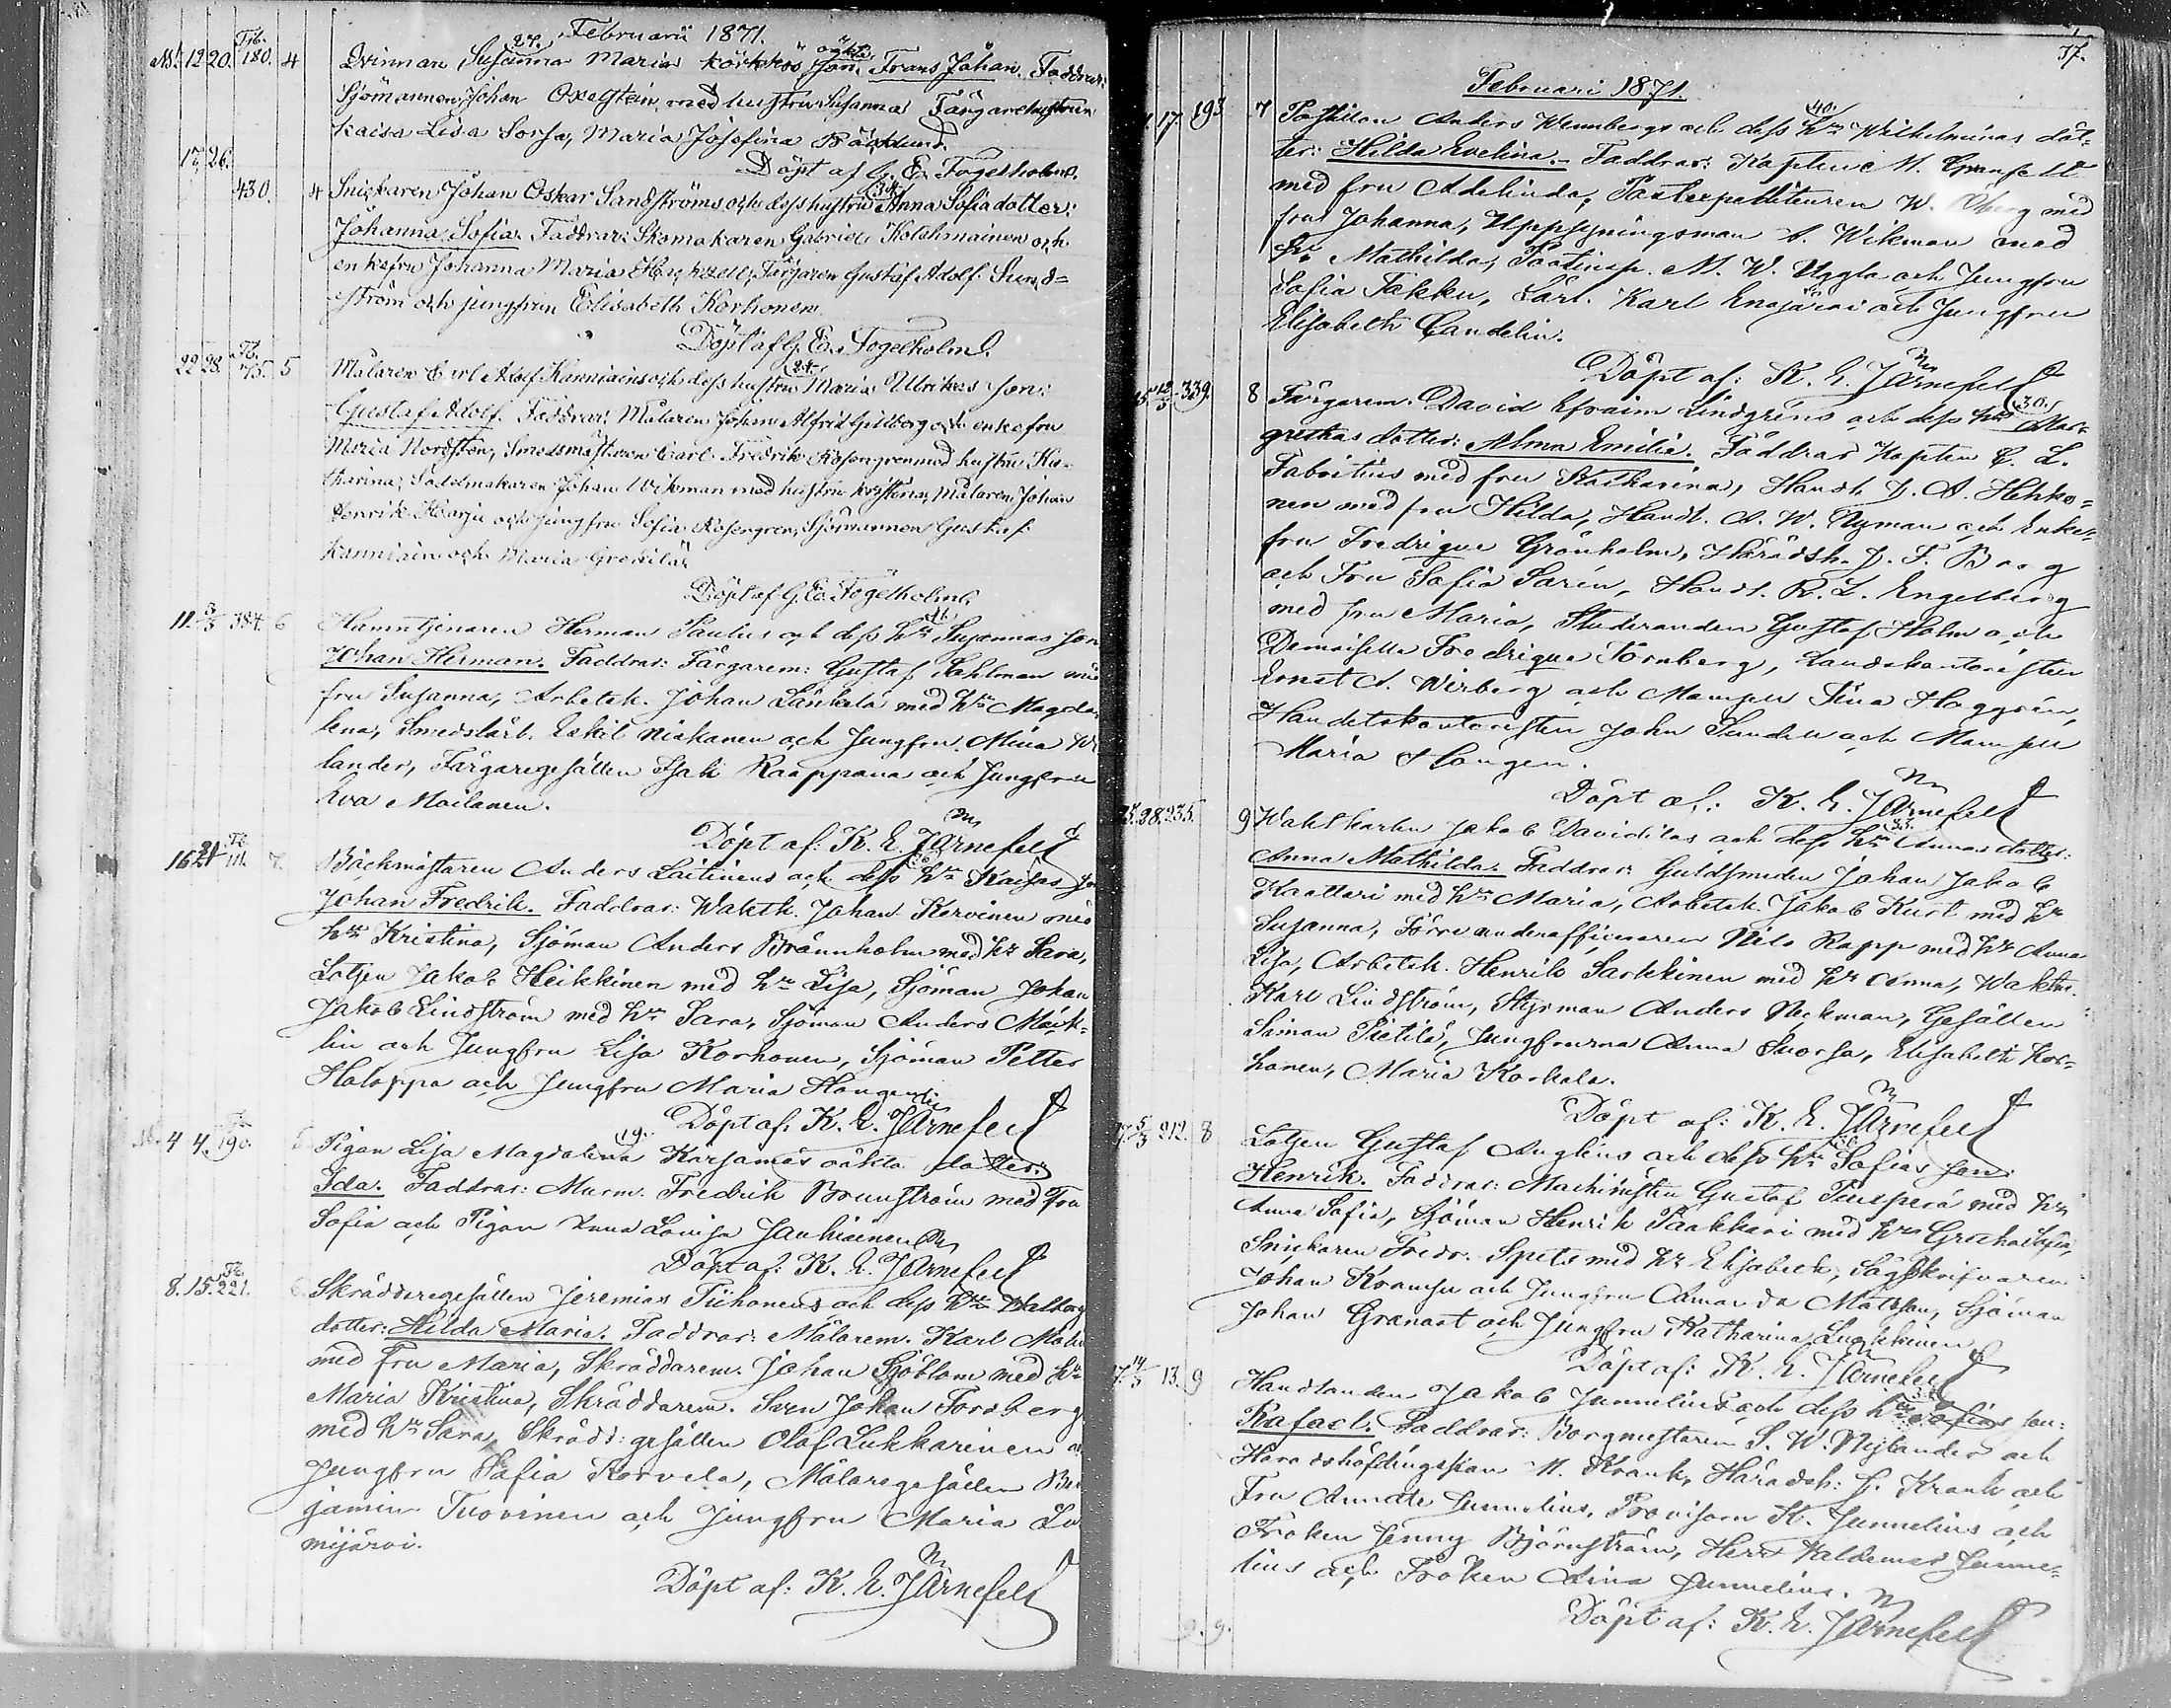 Februarii 1871.
27.
Nb. 12 20. Tjb. 180. 4 Qvinnan Susanna Maria Köikkös oäkta Son: Frans Johan. Faddrar:
Sjömannen Johan Oxelstein med hustru Susanna Färgarehustrun
Kaisa Lisa Sorsa, Maria Josefina Bäcklund.
Döpt af G. E. Fogelholm.
17. 26. 430. 4 Snickaren Johan Oskar Sandströms och dess hustru Anna Sofia dotter:
Johanna Sofia. Faddrar: Skomakaren Gabriel Kolehmainen och
enkefru Johanna Maria Färgaren Gustaf Adolf Sund=
ström och jungfrun Elisabeth Korhonen
Döpt af G. E. Fogelholm.
22 28. Tb. 75. 5 Målaren Carl Adolf Kanniains och dess hustru Maria Ulrikas son:
Gustaf Adolf. Faddrar: Målaren Johan Alfred Gillberg och enkefru
Maria Nordsten, Smedsmästaren Carl Fredrik Rosengren med hustru Ka-
tharina, Sadelmakaren Johan Wikman med hustru Kristina, Målaren Johan
Henrik Harju och jungfru Sofia Rosengren, Sjömannen Gustaf
Kanniain och Maria
Döpt af G. E. Fogelholm.
11. 3/3 384. 6 Hamntjenaren Herman Paulus och dess hu Susannas son
Johan Herman. Faddrar: Färgarem: Gustaf Dahlman med
fru Susanna, Arbetsk. Johan Länkelä med hu Magda-
lena, Smedslärl. Eskil Niskanen och Jungfru Mina
lander, Färgaregesällen Isak Raappana och Jungfru
Eva Moilanen.
Döpt af: K. E. Järnefelt
16 21 Tb. 111. 7. Båckmästaren Anders Laitinens och dess hu Kaisas
Johan Fredrik. Faddrar: Waktk. Johan Kervinen med
hu Kristina, Sjöman Anders Brännholm med hu Sara,
Lotsen Jakob Heikkinen med hu Lisa, Sjöman Johan
Jakob Lindström med hu Sara, Sjöman Anders Märk-
lin och Jungfru Lisa Korhonen, Sjöman Petter
Haloppa och Jungfru Maria Haugen
Döpt af: K. E. Järnefelt
Nb. 4 4. Tb. 190. 5 Pigan Lisa Magdalena 19. Karjamäs oäkta dotter:
Ida. Faddrar: Murm. Fredrik Brunström med Fru
Sofia och Pigan Anna Lovisa Jauhiainen
Döpt af: K. E. Järnefelt
8. 15. Tb. 221. 6. Skräddaregesällen Jeremias Tiihonens och dess hu Walborg
dotter: Hilda Maria. Faddrar: Målarem. Karl
med fru Maria, Skräddarem. Johan Sjöblom med hu
Maria Kristina, Skräddarem. Sven Johan Forsberg
med hu Sara, Skrädd: gesällen Olof Lukkarinen
Jungfru Sofia Korvela, Målaregesällen Ben
jamin Tuovinen och Jungfru Maria Lu
mijärvi.
Döpt af: K. E. Järnefelt
37.
Februari 1871.
17. 193 7 Postillon Anders Wennbergs och dess hu 40. Wilhelminas dot-
ter: Hilda Evelina. Faddrar: Kapten M.
med fru Adelinda, Postexpediteuren W. Öberg med
fru Johanna, Uppsyningsman A. Wikman med
hu Mathilda, M. W. Uggla och Jungfru
Sofia Takku, Lärl. Karl Enajärvi och Jungfru
Elisabeth Candelin.
Döpt af: K. E. Järnefelt
15. 12/3 339. 8 Färgarem. David Efraim Lindgréns och dess hu 30. Mar-
grethas dotter: Alma Emilia. Faddrar Kapten C. L.
Fabritius med fru Katharina, Handl. J. A. Hekko=
nen med fru Hilda, Handl. A. W. Nyman och Enke-
fru Fredrique Grönholm, Häradsh. J. F. Borg
och Fru Sofia Sarén, Handl. R. L. Engelberg
med fru Maria, Studeranden Gustaf Holm och
Demoiselle Fredrique Törnberg, Landskontoristen
Ernst A. Wirberg och Mamsell Fina Haggrén,
Handelskontoristen John Sundell och Mamsell
Maria Haugen.
Döpt af: K. E. Järnefelt
28. 235. 9 Waktkarlen Jakob Davidilas och dess hu 33. Annas dotter:
Anna Mathilda. Faddrar: Guldsmeden Johan Jakob
Kaattari med hu Maria, Arbetsk. Jakob Kurt med hu
Susanna, Förre underofficeraren Nils Rapp med hu Anna
Lisa, Arbetsk. Henrik Sarkkinen med hu Anna, Waktm.
Karl Lindström, Styrman Anders Neckman, Gesällen
Simon Pietilä, Jungfrurna Anna Suorsa, Elisabeth Kor-
honen, Maria Korkala.
Döpt af: K. E. Järnefelt
5/3 212. 8 Lotsen Gustaf Anglins och dess hu Sofias son:
Henrik. Faddrar: Machinisten Gustaf Tuuspera med hu
Anna Sofia, Sjöman Henrik Paakkari med hu Greta Lisa,
Snickaren Fredr. Spets med hu Elisabeth, Sågskrifvaren
Johan Kramsu och Jungfru Amanda Matsson, Sjöman
Johan Granast och Jungfru Katharina Luokkinen
Döpt af: K. E. Järnefelt
14/3 13. 9 Handlanden Jakob Junnelius och dess hu Sofias son:
Rafael. Faddrar: Borgmestaren S. W. Nylander och
Häradshöfdingskan M. Krank, Häradsh: J. Krank och
Fru Annette Junnelius, Provisorn K. Junnelius och
Fröken Jenny Björnström, Herr Waldemar Junne=
lius och Fröken Alina Junnelius.
Döpt af: K. E. Järnefelt
9. 9.